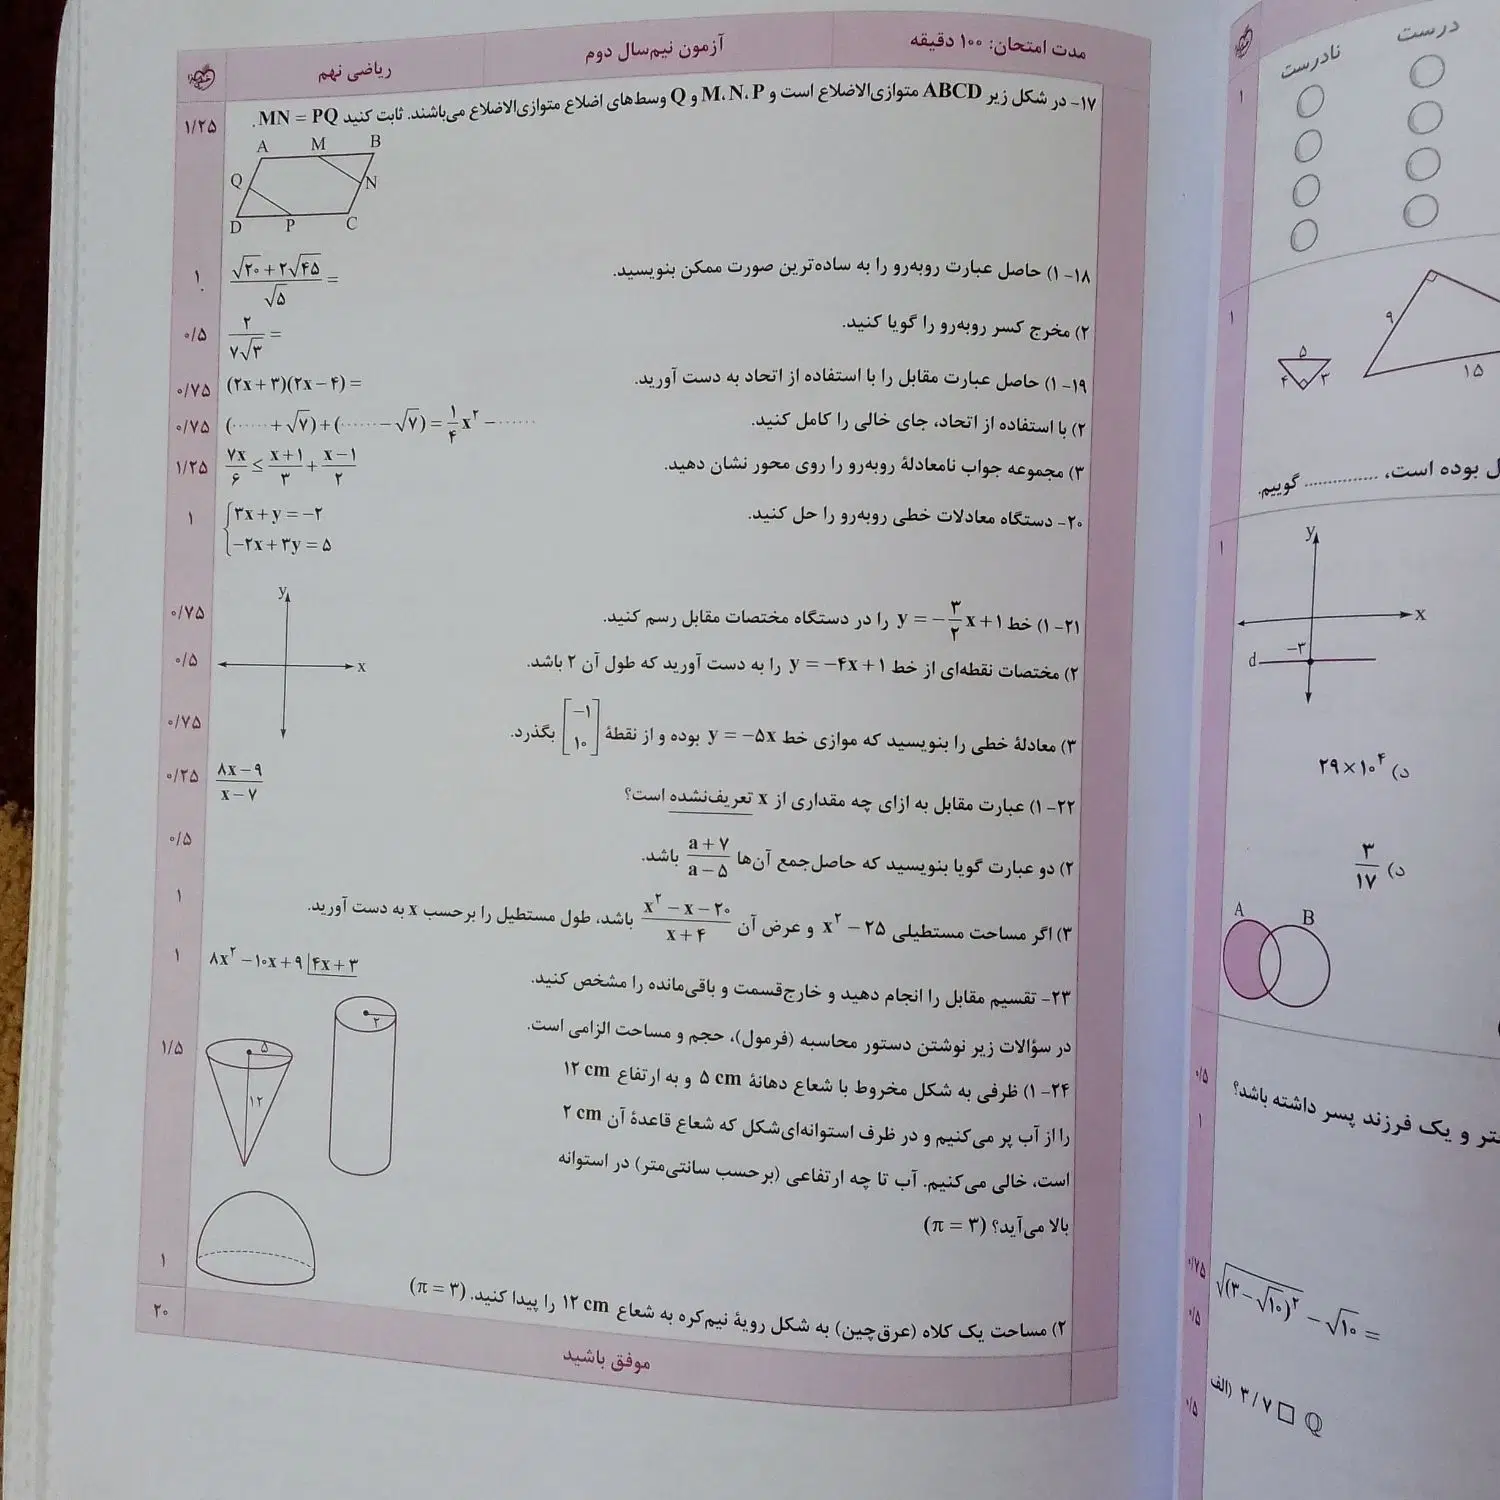 مدت امتحان: ۱۰۰ دقیقه
آزمون نیم‌سال دوم
ریاضی نهم
۱۷- در شکل زیر ABCD متوازی‌الاضلاع است و M، N، P و Q وسط‌های اضلاع متوازی‌الاضلاع می‌باشند. ثابت کنید MN = PQ.
۱/۲۵
A M B
Q N
D P C
۱۸- ۱) حاصل عبارت روبه‌رو را به ساده‌ترین صورت ممکن بنویسید.
(√۲۰ + ۲√۴۵)/√۵ =
۱
۲) مخرج کسر روبه‌رو را گویا کنید.
۲/(۷√۳) =
۰/۵
۱۹- ۱) حاصل عبارت مقابل را با استفاده از اتحاد به دست آورید.
(۲x + ۳)(۲x − ۴) =
۰/۷۵
۲) با استفاده از اتحاد، جای خالی را کامل کنید.
(...... + √۷) + (...... − √۷) = ۱/۴ x² − ......
۰/۷۵
۳) مجموعه جواب نامعادلهٔ روبه‌رو را روی محور نشان دهید.
۷x/۶ ≤ (x+۱)/۳ + (x−۱)/۲
۱/۲۵
۲۰- دستگاه معادلات خطی روبه‌رو را حل کنید.
۳x + y = −۲
−۲x + ۳y = ۵
۱
y
x
۲۱- ۱) خط y = −۳/۲ x + ۱ را در دستگاه مختصات مقابل رسم کنید.
۰/۷۵
۲) مختصات نقطه‌ای از خط y = −۴x + ۱ را به دست آورید که طول آن ۲ باشد.
۰/۵
۳) معادلهٔ خطی را بنویسید که موازی خط y = −۵x بوده و از نقطهٔ [−۱ ۱۰] بگذرد.
۰/۷۵
۲۲- ۱) عبارت مقابل به ازای چه مقداری از x تعریف‌نشده است؟
(۸x − ۹)/(x − ۷)
۰/۲۵
۲) دو عبارت گویا بنویسید که حاصل‌جمع آن‌ها (a + ۷)/(a − ۵) باشد.
۰/۵
۳) اگر مساحت مستطیلی x² − ۲۵ و عرض آن (x² − x − ۲۰)/(x + ۴) باشد، طول مستطیل را برحسب x به دست آورید.
۱
۲۳- تقسیم مقابل را انجام دهید و خارج‌قسمت و باقی‌مانده را مشخص کنید.
۸x² − ۱۰x + ۹ | ۴x + ۳
۱
در سؤالات زیر نوشتن دستور محاسبه (فرمول)، حجم و مساحت الزامی است.
۲۴- ۱) ظرفی به شکل مخروط با شعاع دهانهٔ ۵ cm و به ارتفاع ۱۲ cm
را از آب پر می‌کنیم و در ظرف استوانه‌ای‌شکل که شعاع قاعدهٔ آن ۲ cm
است، خالی می‌کنیم. آب تا چه ارتفاعی (برحسب سانتی‌متر) در استوانه
بالا می‌آید؟ (π = ۳)
۱/۵
۵
۱۲
۲
۲) مساحت یک کلاه (عرق‌چین) به شکل رویهٔ نیم‌کره به شعاع ۱۲ cm را پیدا کنید. (π = ۳)
۱
۲۰
موفق باشید
درست
نادرست
۱
۹
۱۵
۵
۴
۳
۱
ل بوده است، ............... گوییم.
۱
y
x
−۳
d
د) ۲۹×۱۰⁴
د) ۳/۱۷
A
B
۰/۵
و یک فرزند پسر داشته باشد؟
۱
۰/۷۵
√(۳−√۱۰)² − √۱۰ =
۰/۵
الف) ۳/۷ □ ℚ
۰/۵